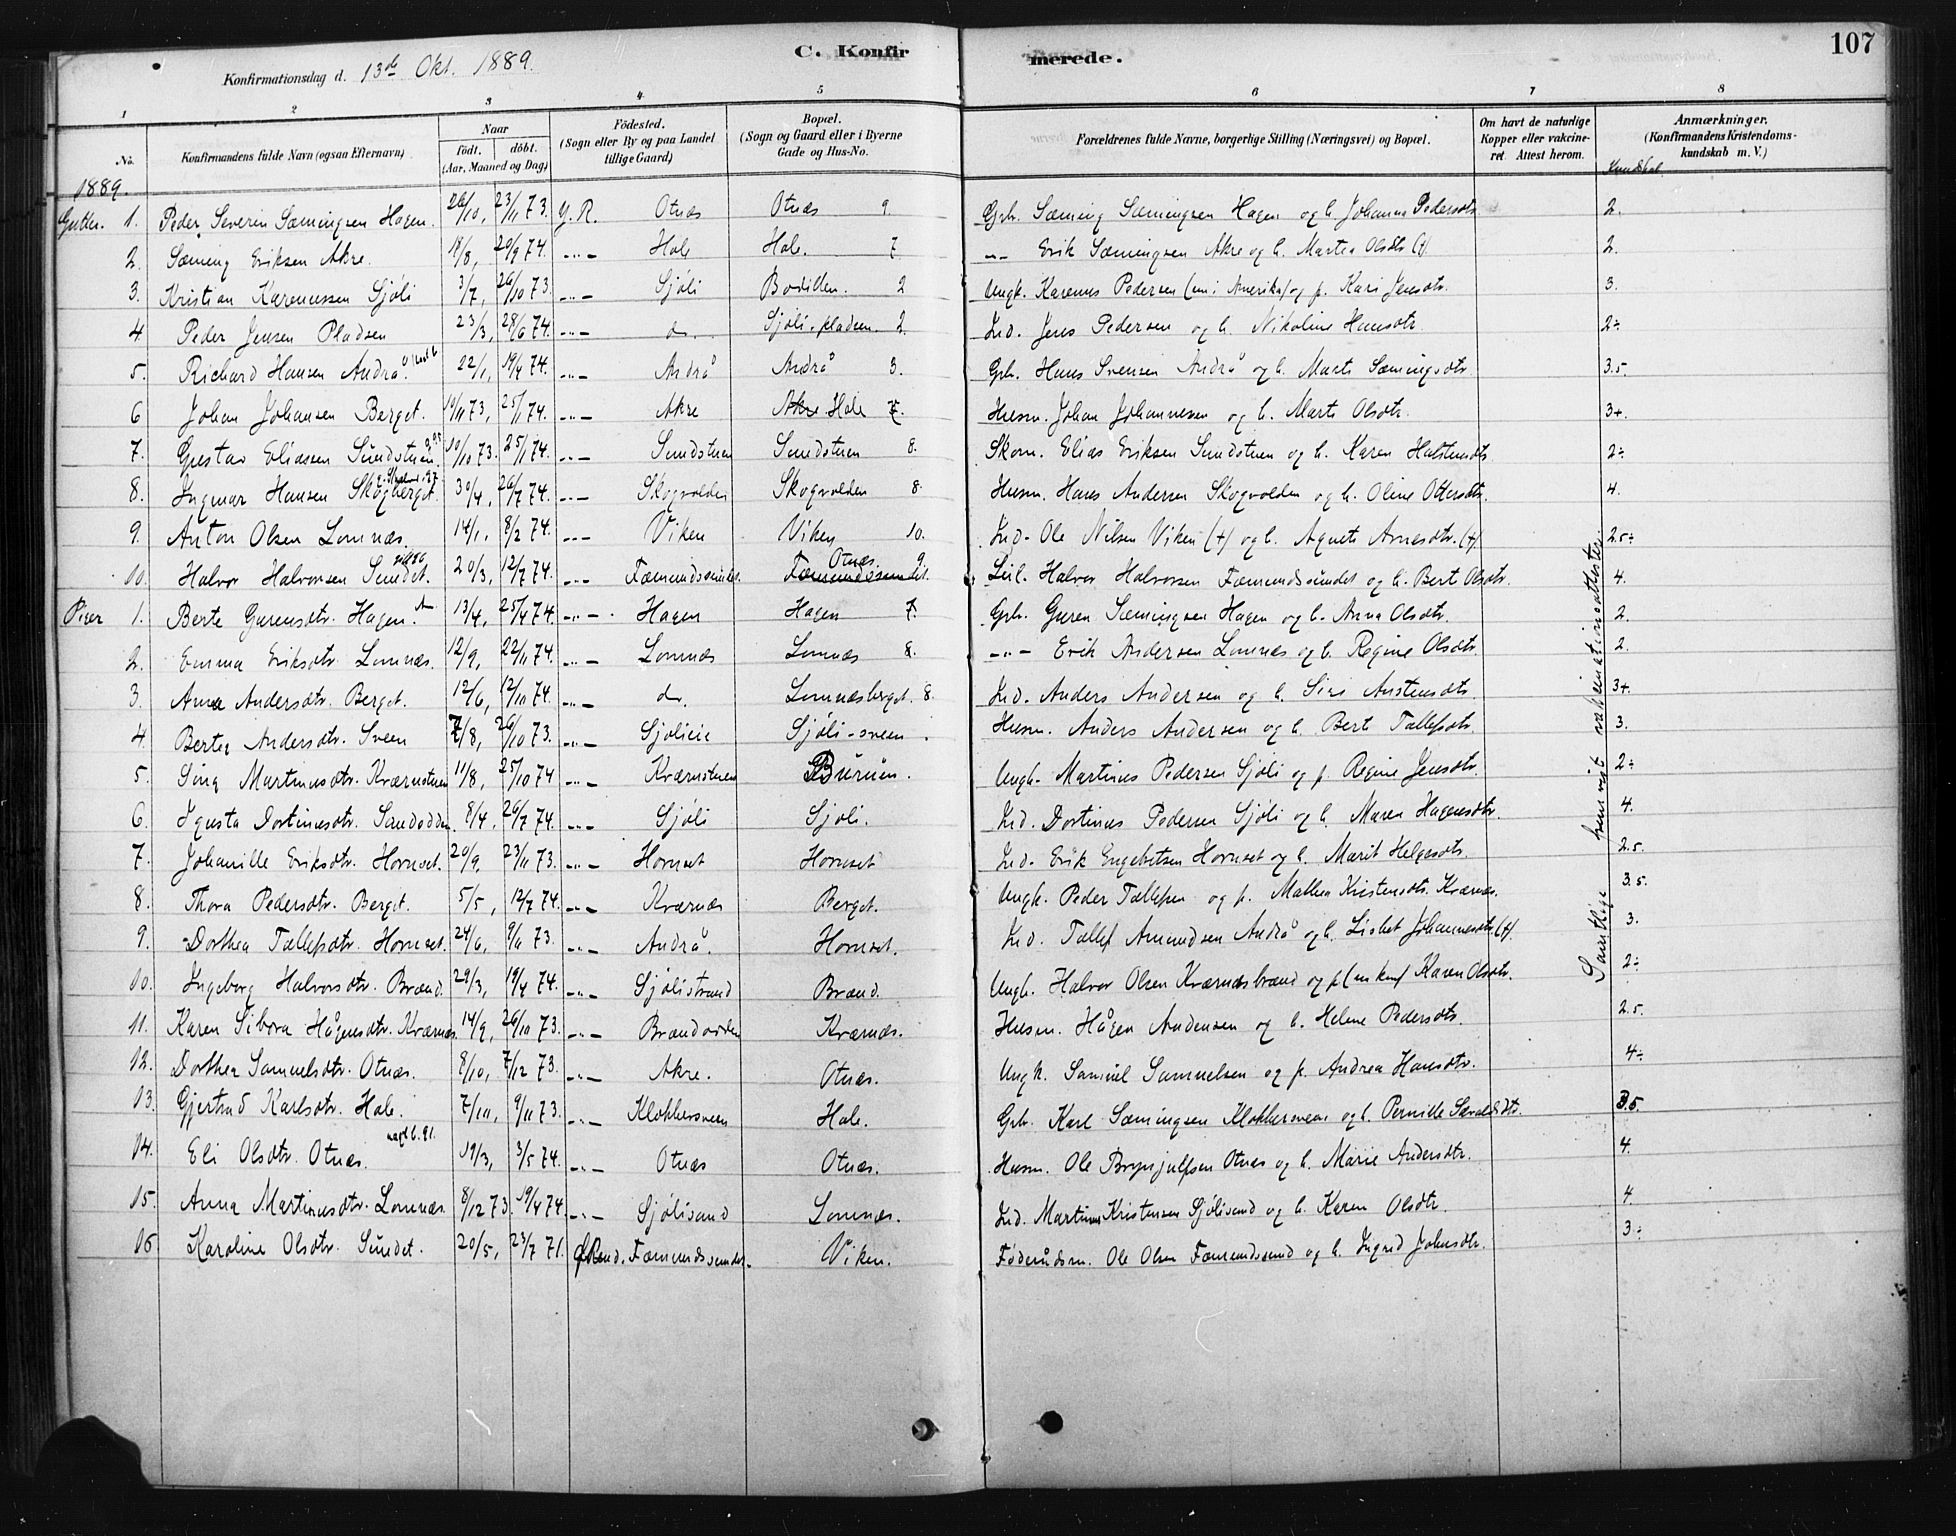 107
C. Konfirmerede.
Konfirmationsdag d. 13de Okt. 1889.
1 2 3 4 5 6 7 8
No. Konfirmandens fulde Navn (ogsaa Efternavn) Naar født, døbt. (Aar, Maaned og Dag) Fødested. (Sogn eller By og paa Landet tillige Gaard) Bopæl. (Sogn og Gaard eller i Byerne Gade og Hus-No. Forældrenes fulde Navne, borgerlige Stilling (Næringsvei) og Bopæl. Om havt de naturlige Kopper eller vakcineret. Attest herom. Anmærkninger. (Konfirmandens Kristendomskundskab m. V.)
1889. Kundskab.
Gutter. 1. Peder Severin Sæmingsen Hagen. 26/10, 23/11 73. Y. R. Otnæs Otnæs 9. Grb. Sæming Sæmingsen Hagen og h. Johanne Pedersdtr. 2.
2. Sæming Eriksen Akre. 18/8, 20/9 74. -"- Hole Hole. 7. -"- Erik Sæmingsen Akre og h. Marthea Olsdtr (+) 2.
3. Kristian Karenussen Sjöli 3/7, 26/10 73. -"- Sjöli Bodillen. 2 Ungk. Karenus Pedersen (nu i Amerika) og p. Kari Jensdtr. 3.
4 Peder Jensen Pladsen 23/3, 28/6 74. -"- do. Sjöli-pladsen. 2. Ind. Jens Pedersen og h. Nikoline Hansdtr. 2÷
5. Richard Hansen Andrå. 22/1, 19/4 74. -"- Andrå Andrå 3. Grb. Hans Svensen Andrå og h. Marte Sæmingsdtr. 3.5.
6 Johan Johansen Berget. 10/11 73, 25/1 74. -"- Akre Akre Hole 7. Husm. Johan Johannesen og h. Marte Olsdtr. 3+.
7. Gustav Eliassen Sundstuen. 10/10 73. 25/1 74. -"- Sundstuen Sundstuen 8. Skom. Elias Eriksen Sundstuen og h. Karen Halstensdtr. 2÷
8. Ingmar Hansen Skogberget. 30/4, 26/7 74. -"- Skogvolden Skogvolden 8. Husm. Hans Andersen Skogvolden og h. Oline Ottersdtr. 4.
9. Anton Olsen Lomnæs. 14/1, 8/2 74. -"- Viken Viken 10. Ind. Ole Nilsen Viken (+) og h. Agnete Arnesdtr. (+) 2.5÷
10. Halvor Halvorsen Sundet. 20/3, 12/7 74. -"- Fæmundssundet. Fæmundssundet. Otnæs. 9. Leil. Halvor Halvorsen Fæmundssundet og h. Bert Olsdtr. 4.
Piger 1. Berte Gurensdtr. Hagen. 13/4, 25/4 74. -"- Hagen Hagen 7. Grb. Guren Sæmingsen Hagen og h. Anna Olsdtr. 2.
2. Emma Eriksdtr. Lomnæs. 12/9, 22/11 74. -"- Lomnæs Lomnæs 8. -"- Erik Andersen Lomnæs og h. Regine Olsdtr. 2.
3. Anne Andersdtr. Berget. 12/6, 12/10 74. -"- do. Lomnæsberget. 8. Ind. Anders Andersen og h. Siri Austensdtr. 3+.
4. Berthe Andersdtr. Sveen 7/8, 26/10 73. -"- Sjölieie Sjöli-sveen. Husm. Anders Andersen og h. Bert Tallefsdtr. 3.
5. Sina Martinusdtr. Kværnstuen 11/8, 25/10 74 -"- Kværnstuen Burùen. Ungk. Martinus Pedersen Sjöli og p. Regine Jensdtr. 2÷
6. Igusta Dortinusdtr. Sandodden. 8/4, 26/7 74. -"- Sjöli Sjöli. Ind. Dortinus Pedersen Sjöli og h. Maren Hagensdtr. 4.
7. Johanille Eriksdtr. Hornset. 20/9, 23/11 73. -"- Hornset Hornset Ind. Erik Engebretsen Hornset og h. Marit Helgesdtr. 2.5.
8. Thora Pedersdtr. Berget. 5/5, 12/7 74. -"- Kværnæs Berget. Ungk. Peder Tallefsen og p. Mathea Kristensdtr. Kværnæs. 3.5.
9. Dorthea Tallefsdtr. Hornset. 24/6, 9/11 73. -"- Andrå. Hornset. Ind. Tallef Amundsen Andrå og h. Lisbet Johannesdtr. (+). 3.
10. Ingeborg Halvorsdtr. Brænd. 29/3, 19/4 74. -"- Sjölistrand Brænd. Ungk. Halvor Olsen Kværnæsbrænd og p. Karen Olsdtr. 2÷
11. Karen Sibora Hågensdtr. Kværnæs. 14/9, 26/10 73. -"- Brændodden Kværnæs. Husm. Hågen Andersen og h. Helene Pedersdtr. 2.5.
12. Dorthea Samuelsdtr. Otnæs. 8/10, 7/12 73. -"- Akre. Otnæs. Ungk. Samuel Samuelsen og p. Andrea Hansdtr. 4÷
13. Gjertrud Karlsdtr. Hole. 7/10, 9/11 73. -"- Klokkersveen Hole. Grb. Karl Sæmingsen Klokkersveen og h. Pernille 3.5.
14. Eli Olsdtr. Otnæs. 19/3, 3/5 74. -"- Otnæs Otnæs. Husm. Ole Brynjulfsen Otnæs og h. Marie Andersdtr. 4.
15. Anna Martinusdtr. Lomnæs. 8/12 73. 19/4 74. -"- Sjölisand Lomnæs. Ind. Martinus Kristensen Sjölisand og h. Karen Olsdtr. 4
16. Karoline Olsdtr. Sundet. 20/5, 23/7 71. Fæmundssundet. Viken. Föderådsm. Ole Olsen Fæmundssund og h. Ingrid Johnsdtr. 3÷
Samtlige fremvist vakcinationsattester